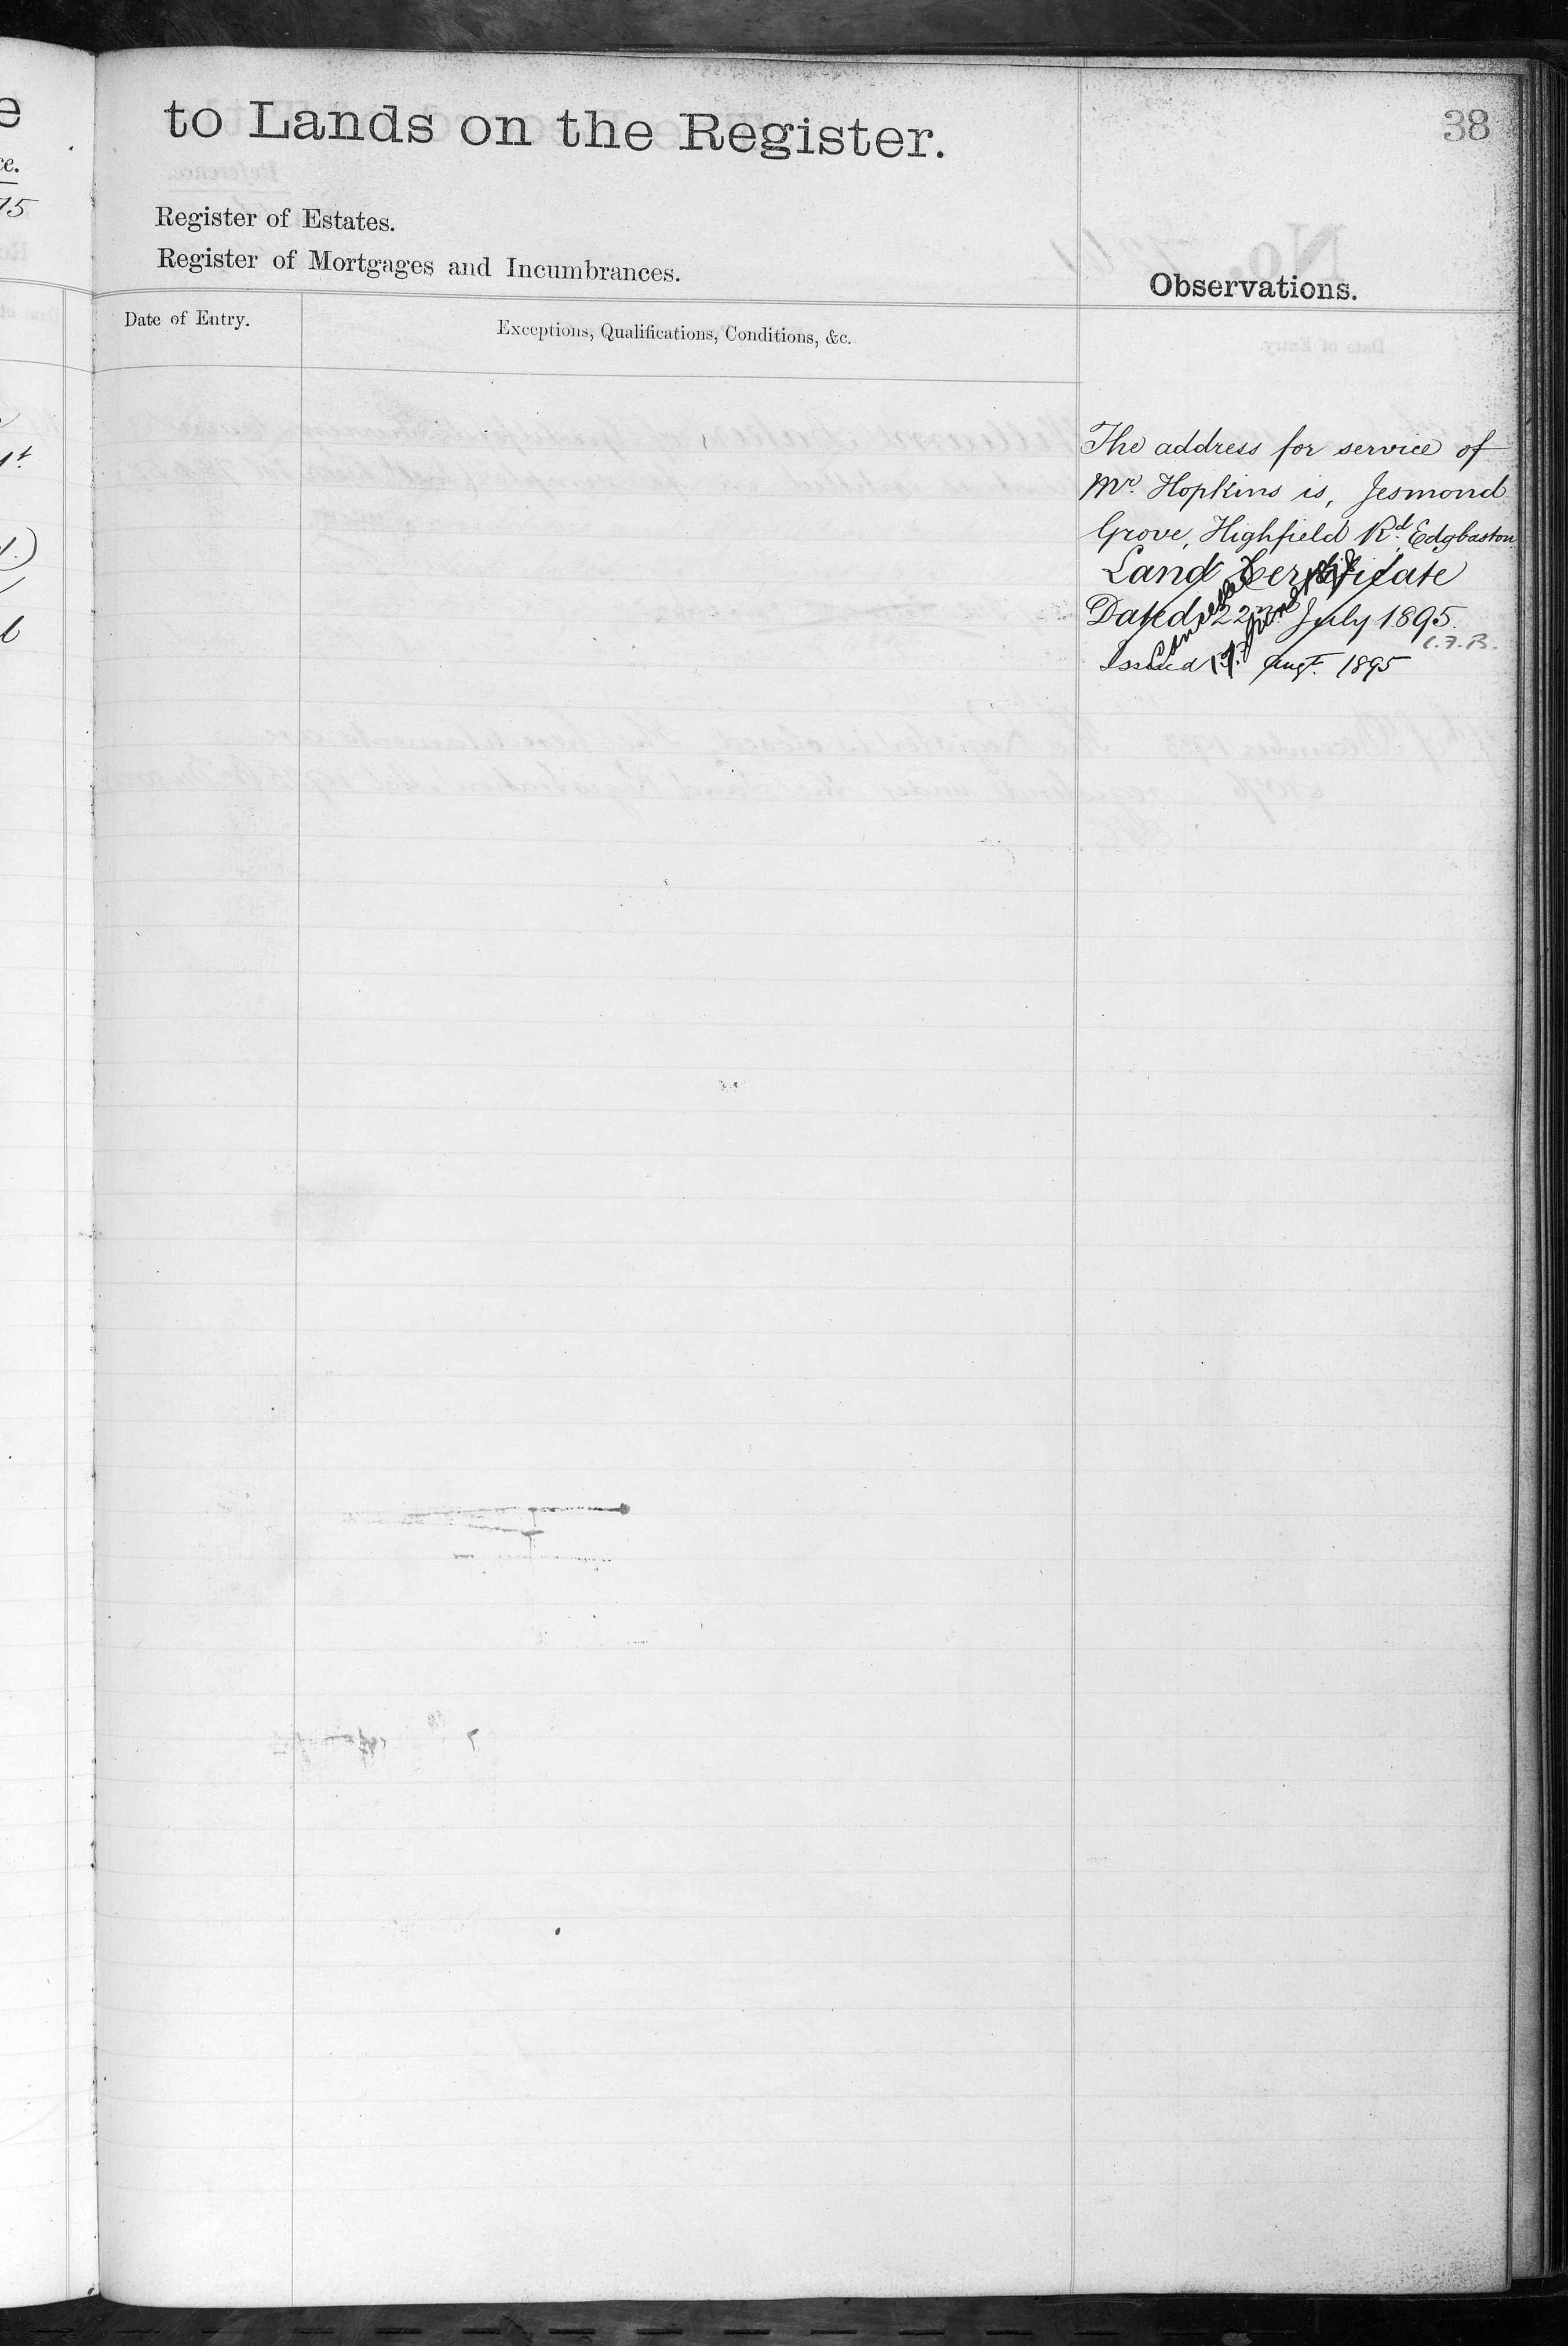 to Lands on the Register.
38
Register of Estates.
Register of Mortgages and Incumbrances.
Observations.
Date of Entry.
Exceptions, Qualifications, Conditions, &c.
The address for service of
Mr. Hopkins is, Jesmond
Grove, Highfield Rd. Edgbaston
Land Certificate
Dated 22nd July 1895.
C.F.B.
Issued Augt. 1895
Cancelled